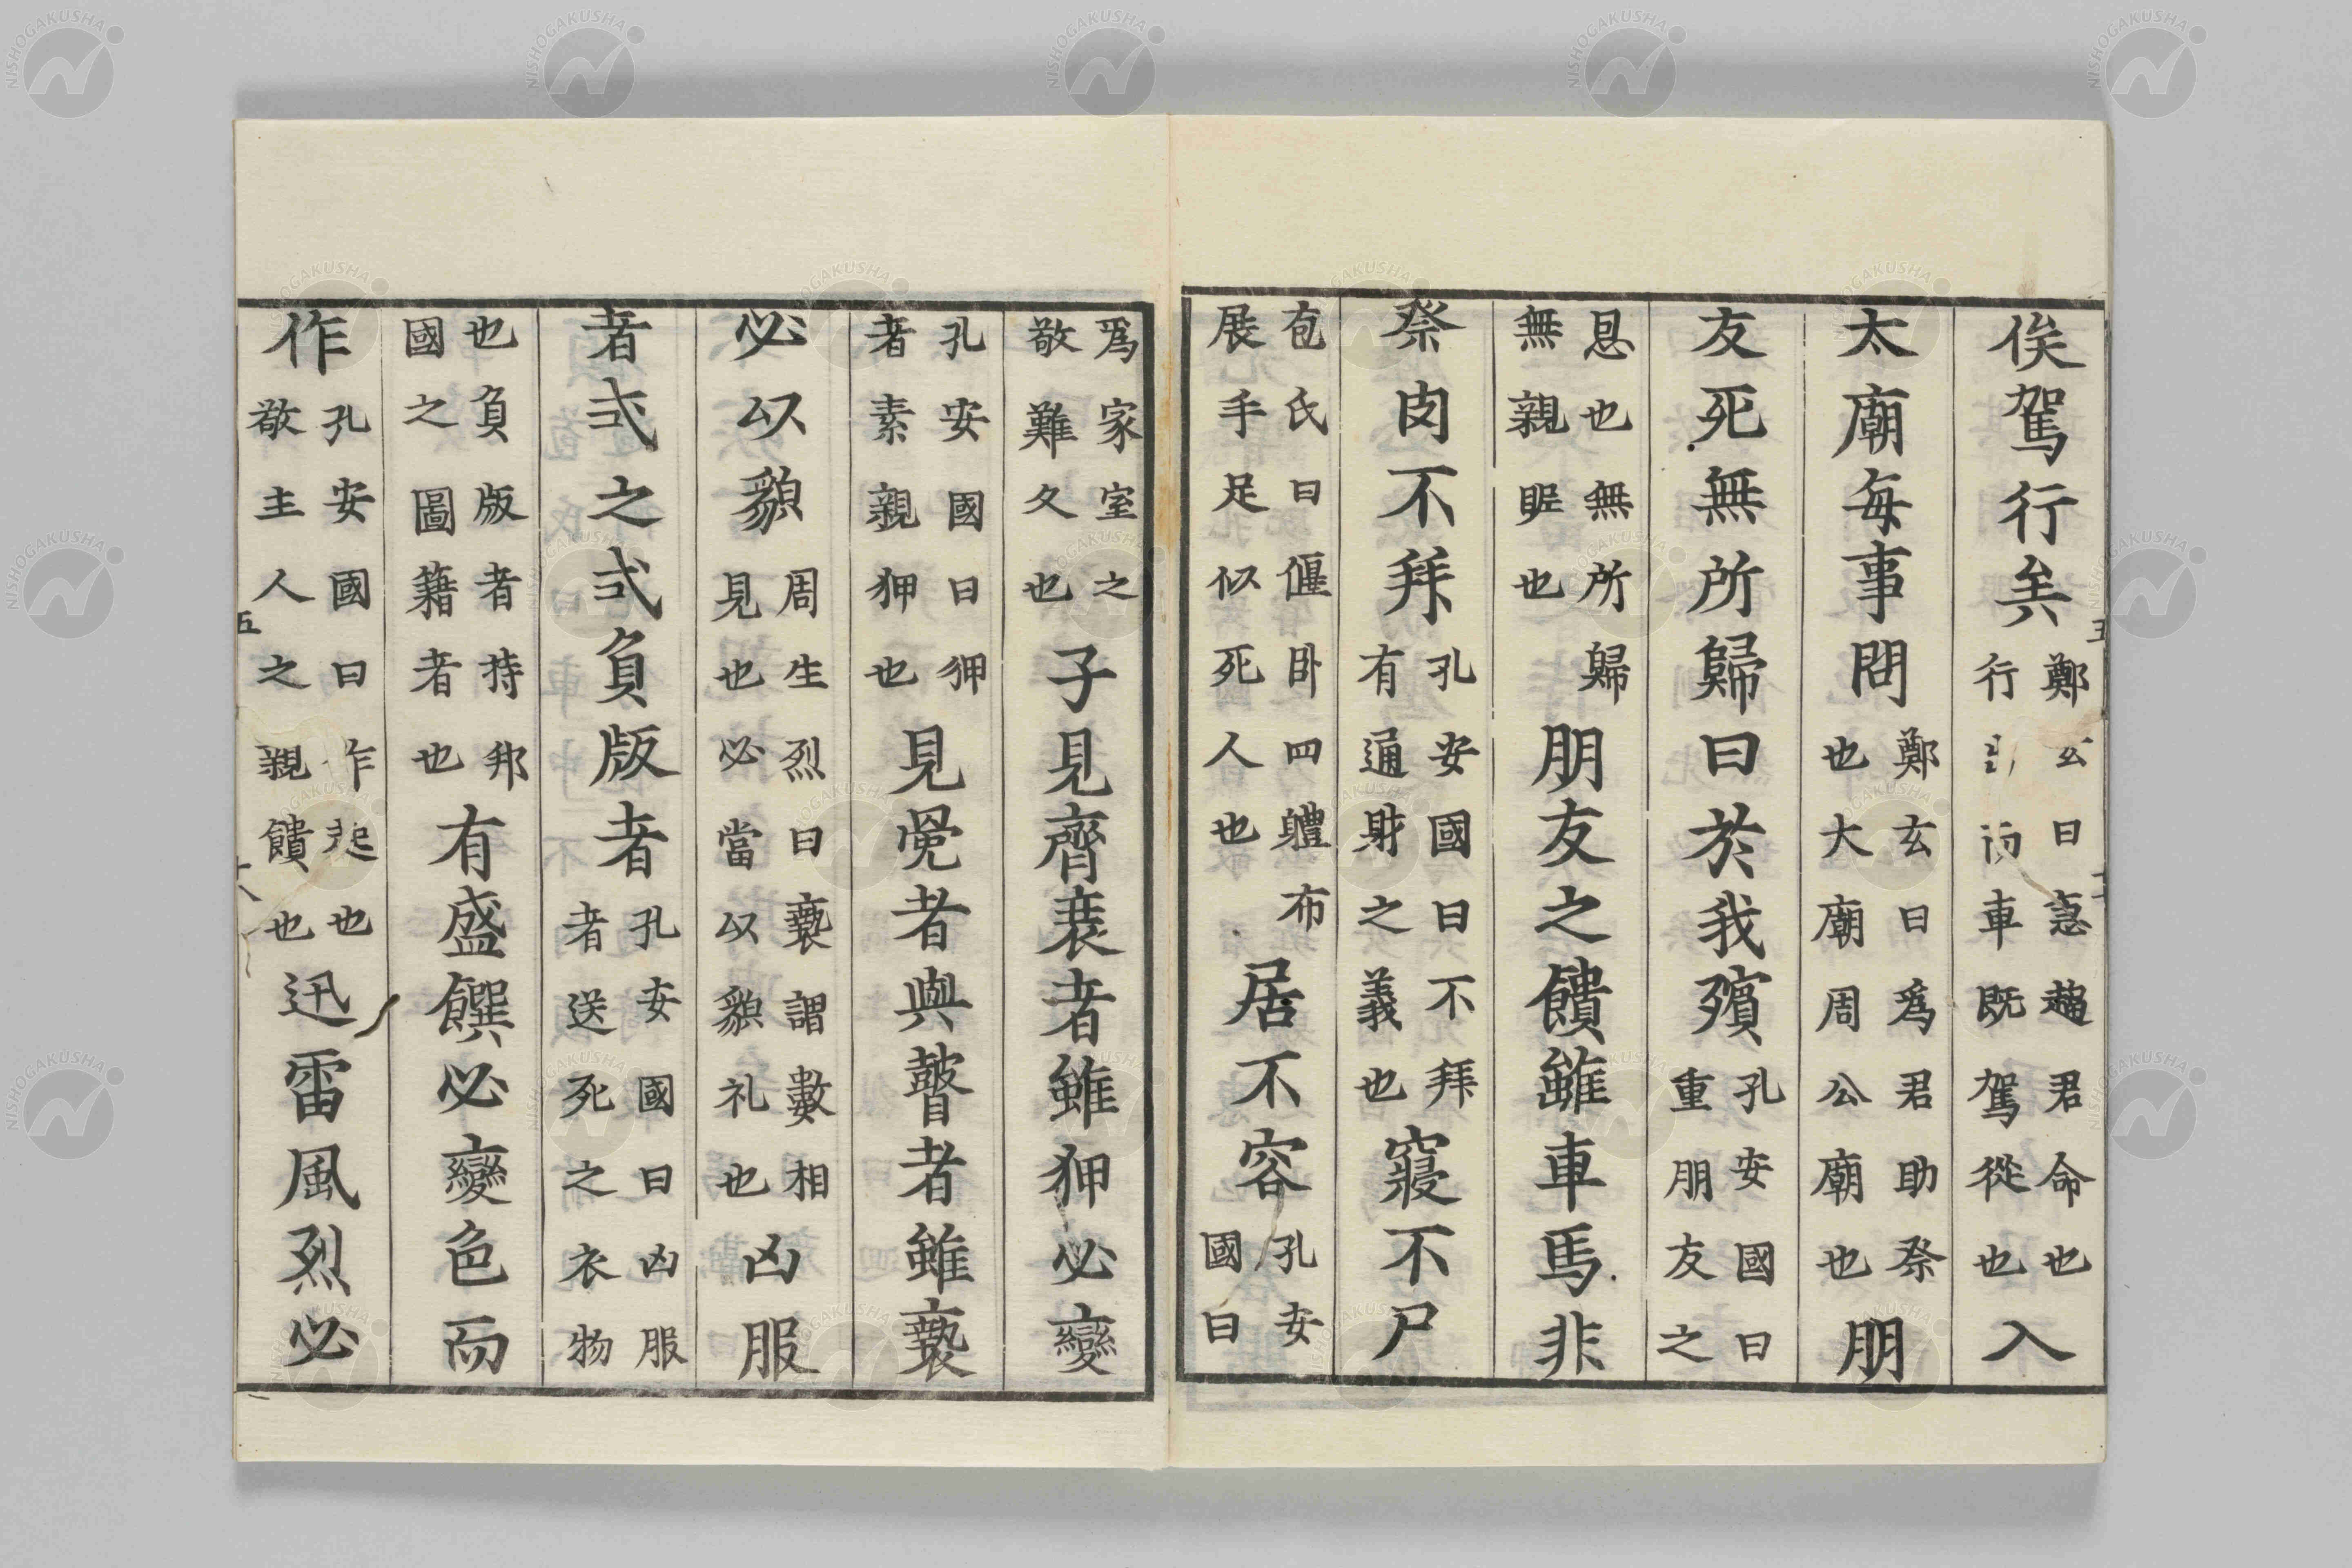 俟駕行矣鄭玄曰急趨君命也行車既駕從也入
太廟每事問鄭玄曰爲君助祭也大廟周公廟也朋
友死無所歸曰於我殯孔安國曰重朋友之
恩也無所歸無親昵也朋友之饋雖車馬非
祭肉不拜孔安國曰不拜有通財之義也寢不尸
苞氏曰偃臥四體布展手足似死人也居不容孔安國曰
爲家室之敬難久也子見齊衰者雖狎必變
孔安國曰狎者素親狎也見冕者與瞽者雖褻
必以貌周生烈曰褻謂數相見也必當以貌礼也凶服
者式之式負版者孔安國曰凶服者送死之衣物
也負版者持邦國之圖籍者也有盛饌必變色而
作孔安國曰作起也敬主人之親饋也迅雷風烈必
NISHOGAKUSHA